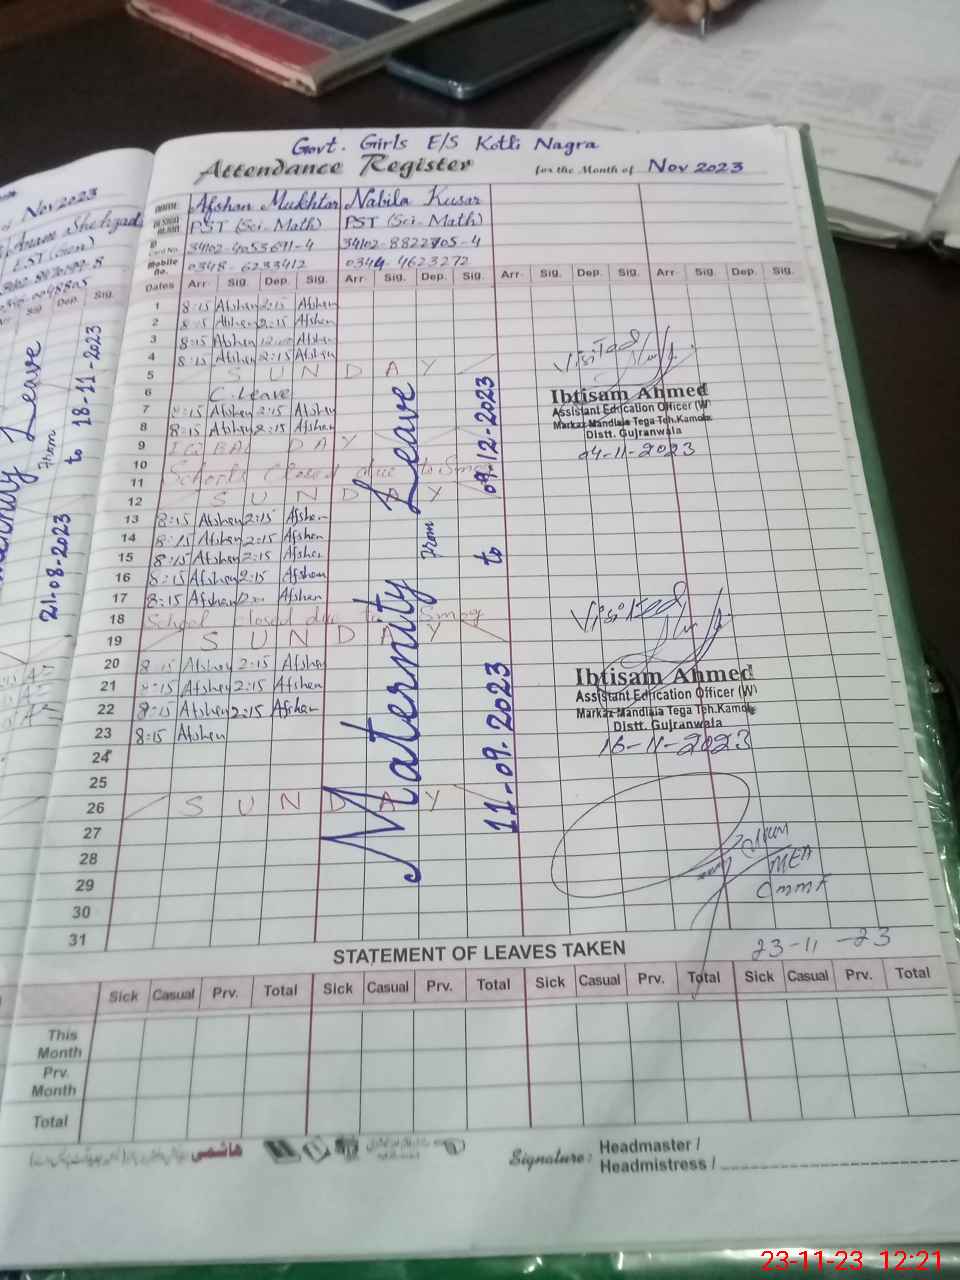 Govt. Girls E/S Kotli Nagra
Attendance Register for the Month of Nov 2023
NAME Afshan Mukhtar Nabila Kusar
PST (Sci. Math) PST (Sci. Math)
ID Card No. 34102-4053611-4 34102-8822705-4
Mobile no. 0348-6233412 0344-4623272
Dates Arr. Sig. Dep. Sig. Arr. Sig. Dep. Sig. Arr. Sig. Dep. Sig. Arr. Sig. Dep. Sig.
1 8:15 Afshan 2:15 Afshan
2 8:15 Afshan 2:15 Afshan
3 8:15 Afshan 12:00 Afshan
4 8:15 Afshan 2:15 Afshan
5 S U N D A Y
6 C. Leave
7 8:15 Afshan 2:15 Afshan
8 8:15 Afshan 2:15 Afshan
9 IQBAL DAY
10 Schools Closed due to Smog
11
12 S U N D A Y
13 8:15 Afshan 2:15 Afshan
14 8:15 Afshan 2:15 Afshan
15 8:15 Afshan 2:15 Afshan
16 8:15 Afshan 2:15 Afshan
17 8:15 Afshan Afshan
18 School closed due to Smog
19 S U N D A Y
20 8:15 Afshan 2:15 Afshan
21 8:15 Afshan 2:15 Afshan
22 8:15 Afshan 2:15 Afshan
23 8:15 Afshan
24
25
26 S U N D A Y
27
28
29
30
31
Maternity Leave
From
11-09-2023 to 09-12-2023
Visited
Ibtisam Ahmed
Assistant Education Officer (W)
Markaz-Mandiala Tega Teh.Kamoke
Distt. Gujranwala
04-11-2023
Visited
Ibtisam Ahmed
Assistant Education Officer (W)
Markaz-Mandiala Tega Teh.Kamoke
Distt. Gujranwala
16-11-2023
MEA
23-11-23
STATEMENT OF LEAVES TAKEN
Sick Casual Prv. Total Sick Casual Prv. Total Sick Casual Prv. Total Sick Casual Prv. Total
This Month
Prv. Month
Total
ہاشمی
Signature: Headmaster /
Headmistress /
Nov 2023
Anam Shehzadi
EST (Gen)
Dep. Sig.
Leave
From
21-08-2023 to 18-11-2023
23-11-23 12:21